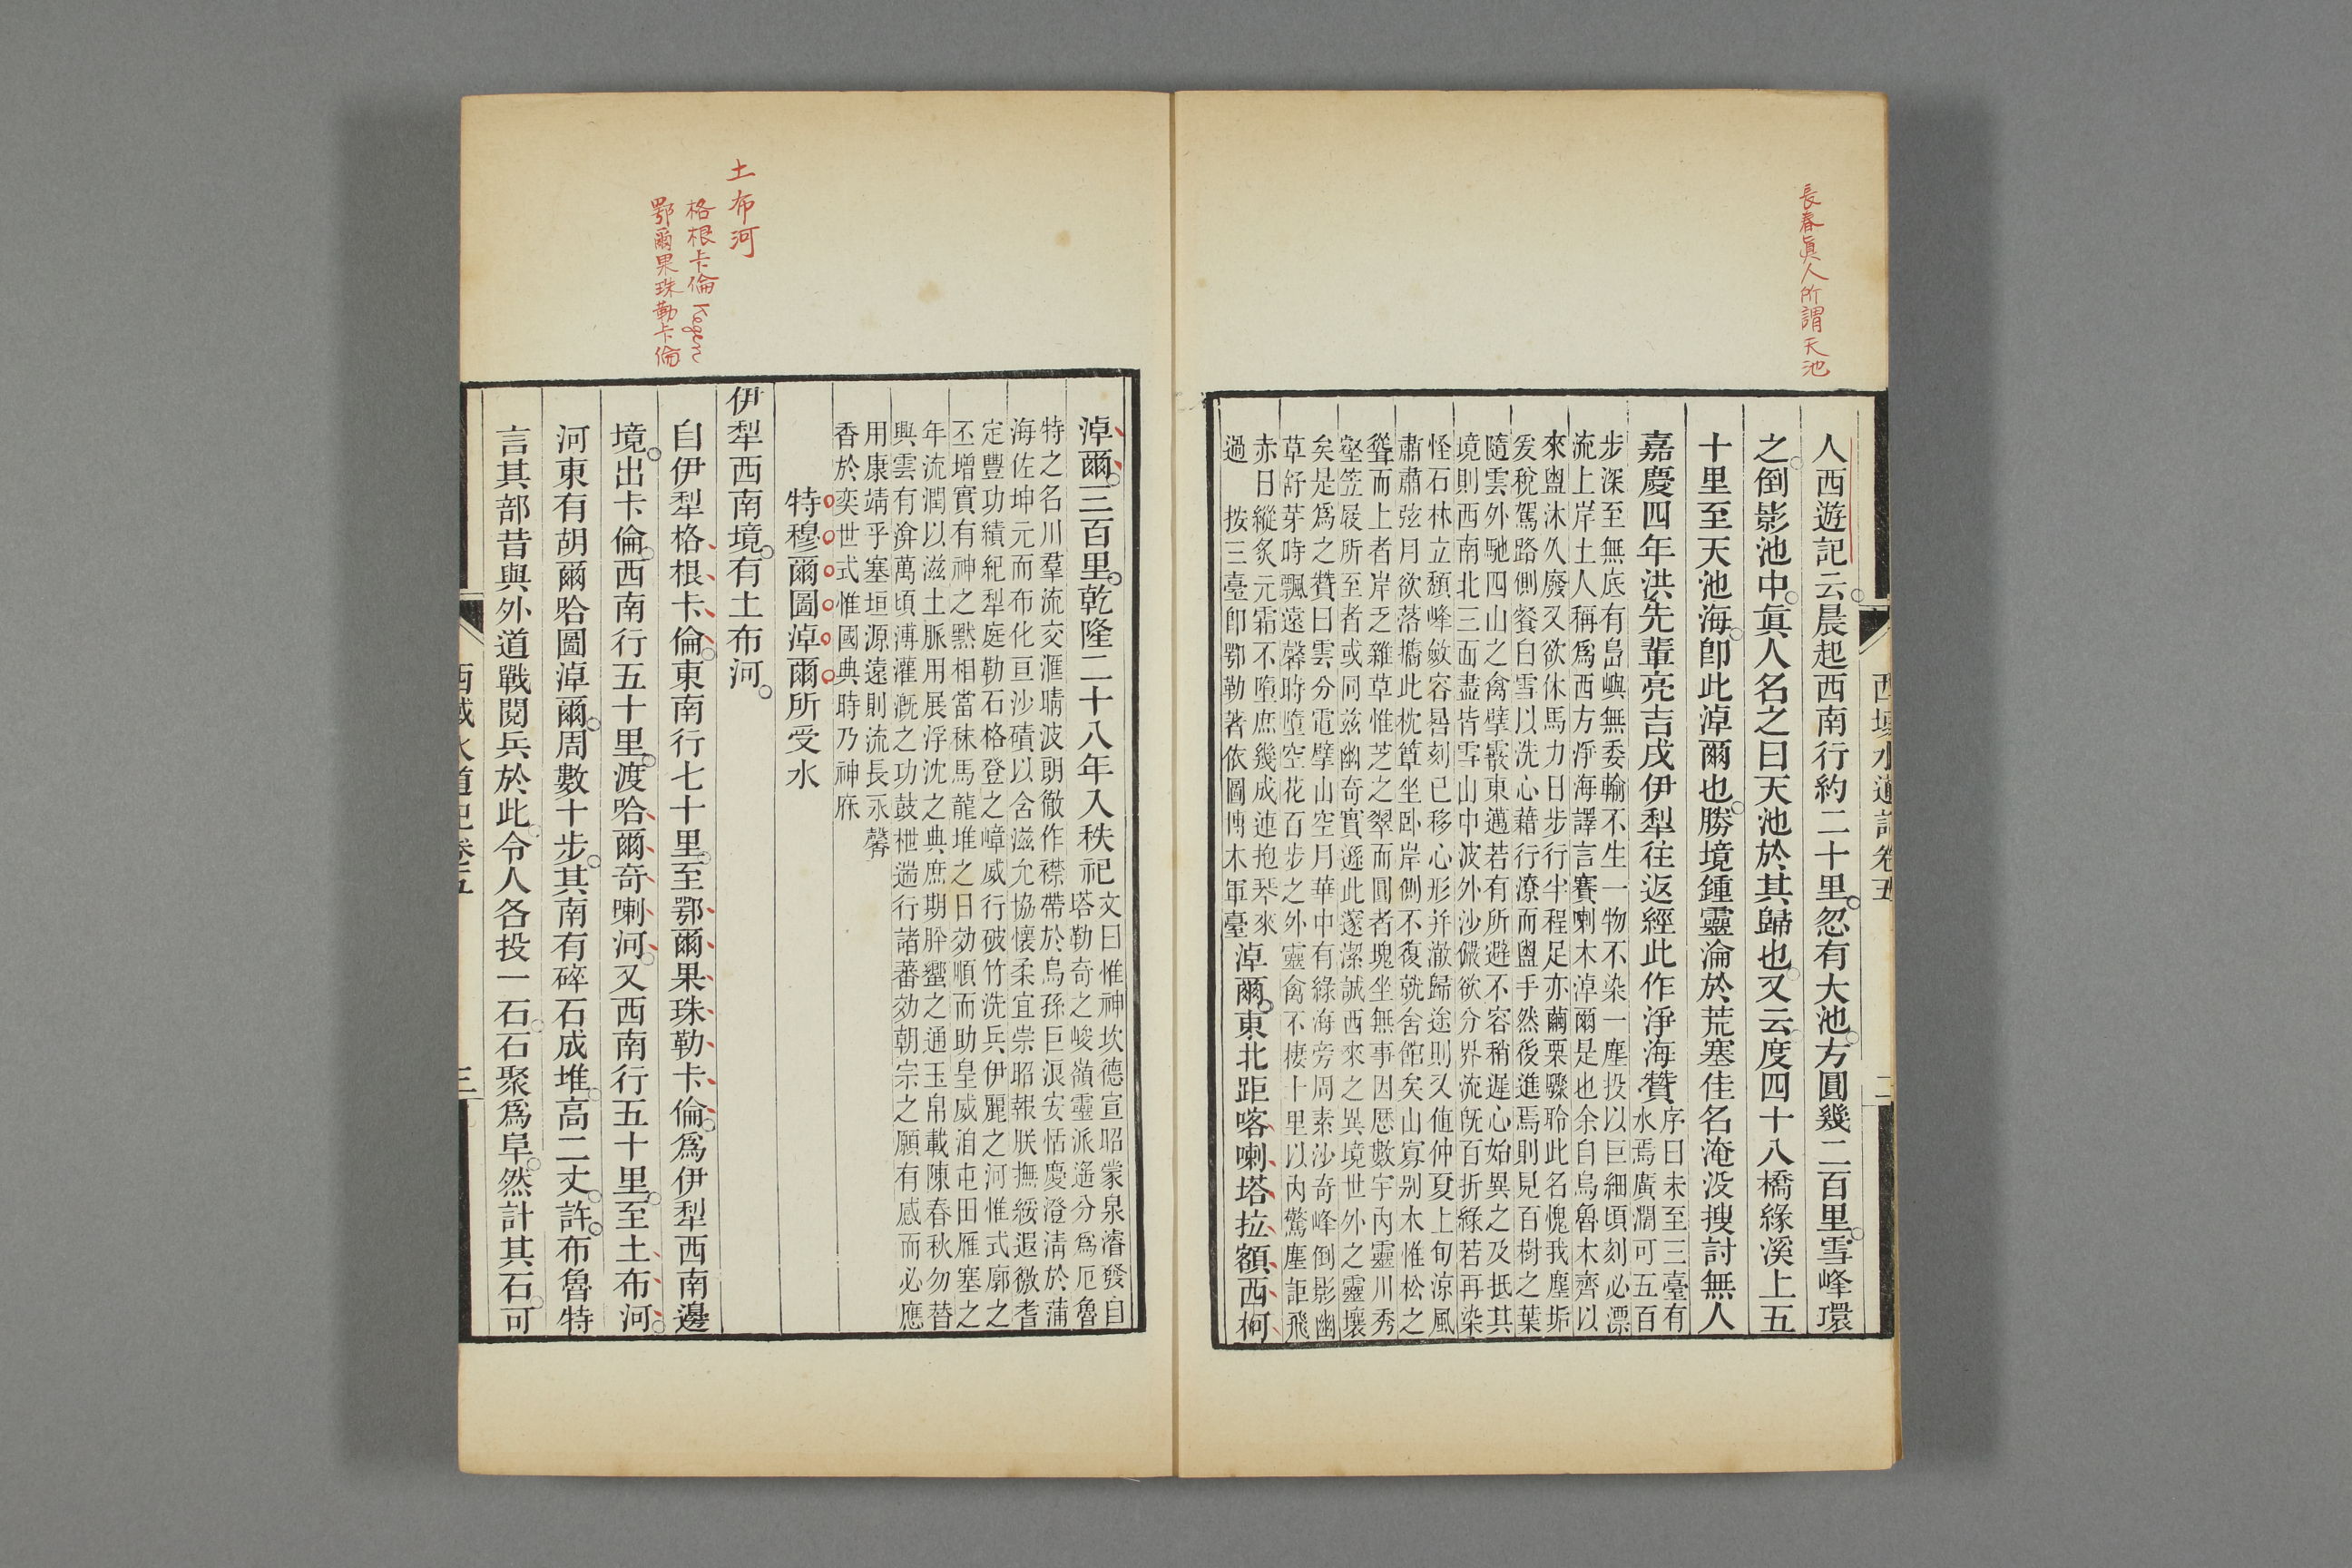 長春眞人所謂天池
西域水道記卷五
二
人西遊記云晨起西南行約二十里忽有大池方圓幾二百里雪峰環
之倒影池中眞人名之曰天池於其歸也又云度四十八橋緣溪上五
十里至天池海卽此淖爾也勝境鍾靈淪於荒塞佳名淹没搜討無人
嘉慶四年洪先輩亮吉戍伊犁往返經此作淨海贊序曰未至三臺有
水焉廣濶可五百
步深至無底有島嶼無委輸不生一物不染一塵投以巨細頃刻必漂
流上岸土人稱爲西方淨海譯言賽喇木淖爾是也余自烏魯木齊以
來盥沐久廢又欲休馬力日步行半程足亦繭栗驟聆此名愧我塵垢
爰稅駕路側餐白雪以洗心藉行潦而盥手然後進焉則見百樹之葉
隨雲外馳四山之禽擘霰東邁若有所避不容稍遲心始異之及抵其
境則西南北三面盡皆雪山中波外沙儼欲分界流旣百折綠若再染
怪石林立頹峰斂容晷刻已移心形并澈歸途則又値仲夏上旬涼風
肅肅弦月欲落攜此枕簟坐卧岸側不復就舍館矣山寡别木惟松之
聳而上者岸乏雜草惟芝之翠而圓者塊坐無事因歷數宇内靈川秀
壑笠屐所至者或同兹幽奇實遜此邃潔誠西來之異境世外之靈壤
矣是爲之贊曰雲分電擘山空月華中有綠海旁周素沙奇峰倒影幽
草舒芽時飄遠馨時墮空花百步之外靈禽不棲十里以内驚塵詎飛
赤日縱炙元霜不墮庶幾成連抱琴來
過 按三臺卽鄂勒著依圖博木軍臺
淖爾東北距喀喇塔拉額西柯
土布河
格根卡倫 Kegen
鄂爾果珠勒卡倫
淖爾三百里乾隆二十八年入秩祀文曰惟神坎德宣昭蒙泉濬發自
塔勒奇之峻嶺靈派遙分爲厄魯
特之名川羣流交滙晴波朗徹作襟帶於烏孫巨浪安恬慶澄淸於蒲
海佐坤元而布化亘沙磧以含滋允協懷柔宜崇昭報朕撫綏遐徼耆
定豐功績紀犁庭勒石格登之嶂威行破竹洗兵伊麗之河惟式廓之
丕增實有神之黙相當秣馬龍堆之日効順而助皇威洎屯田雁塞之
年流潤以滋土脈用展浮沈之典庶期肸蠁之通玉帛載陳春秋勿替
興雲有渰萬頃溥灌漑之功鼓枻遄行諸蕃効朝宗之願有感而必應
用康靖乎塞垣源遠則流長永馨
香於奕世式惟國典時乃神庥
特穆爾圖淖爾所受水
伊犁西南境有土布河
自伊犁格根卡倫東南行七十里至鄂爾果珠勒卡倫爲伊犁西南邊
境出卡倫西南行五十里渡哈爾奇喇河又西南行五十里至土布河
河東有胡爾哈圖淖爾周數十步其南有碎石成堆高二丈許布魯特
言其部昔與外道戰閱兵於此令人各投一石石聚爲阜然計其石可
西域水道記卷五
三